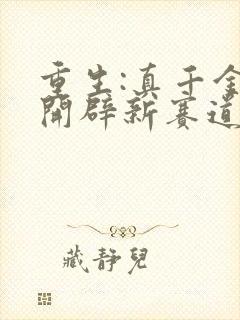 重生:真千金
開辟新賽道
藏静兒